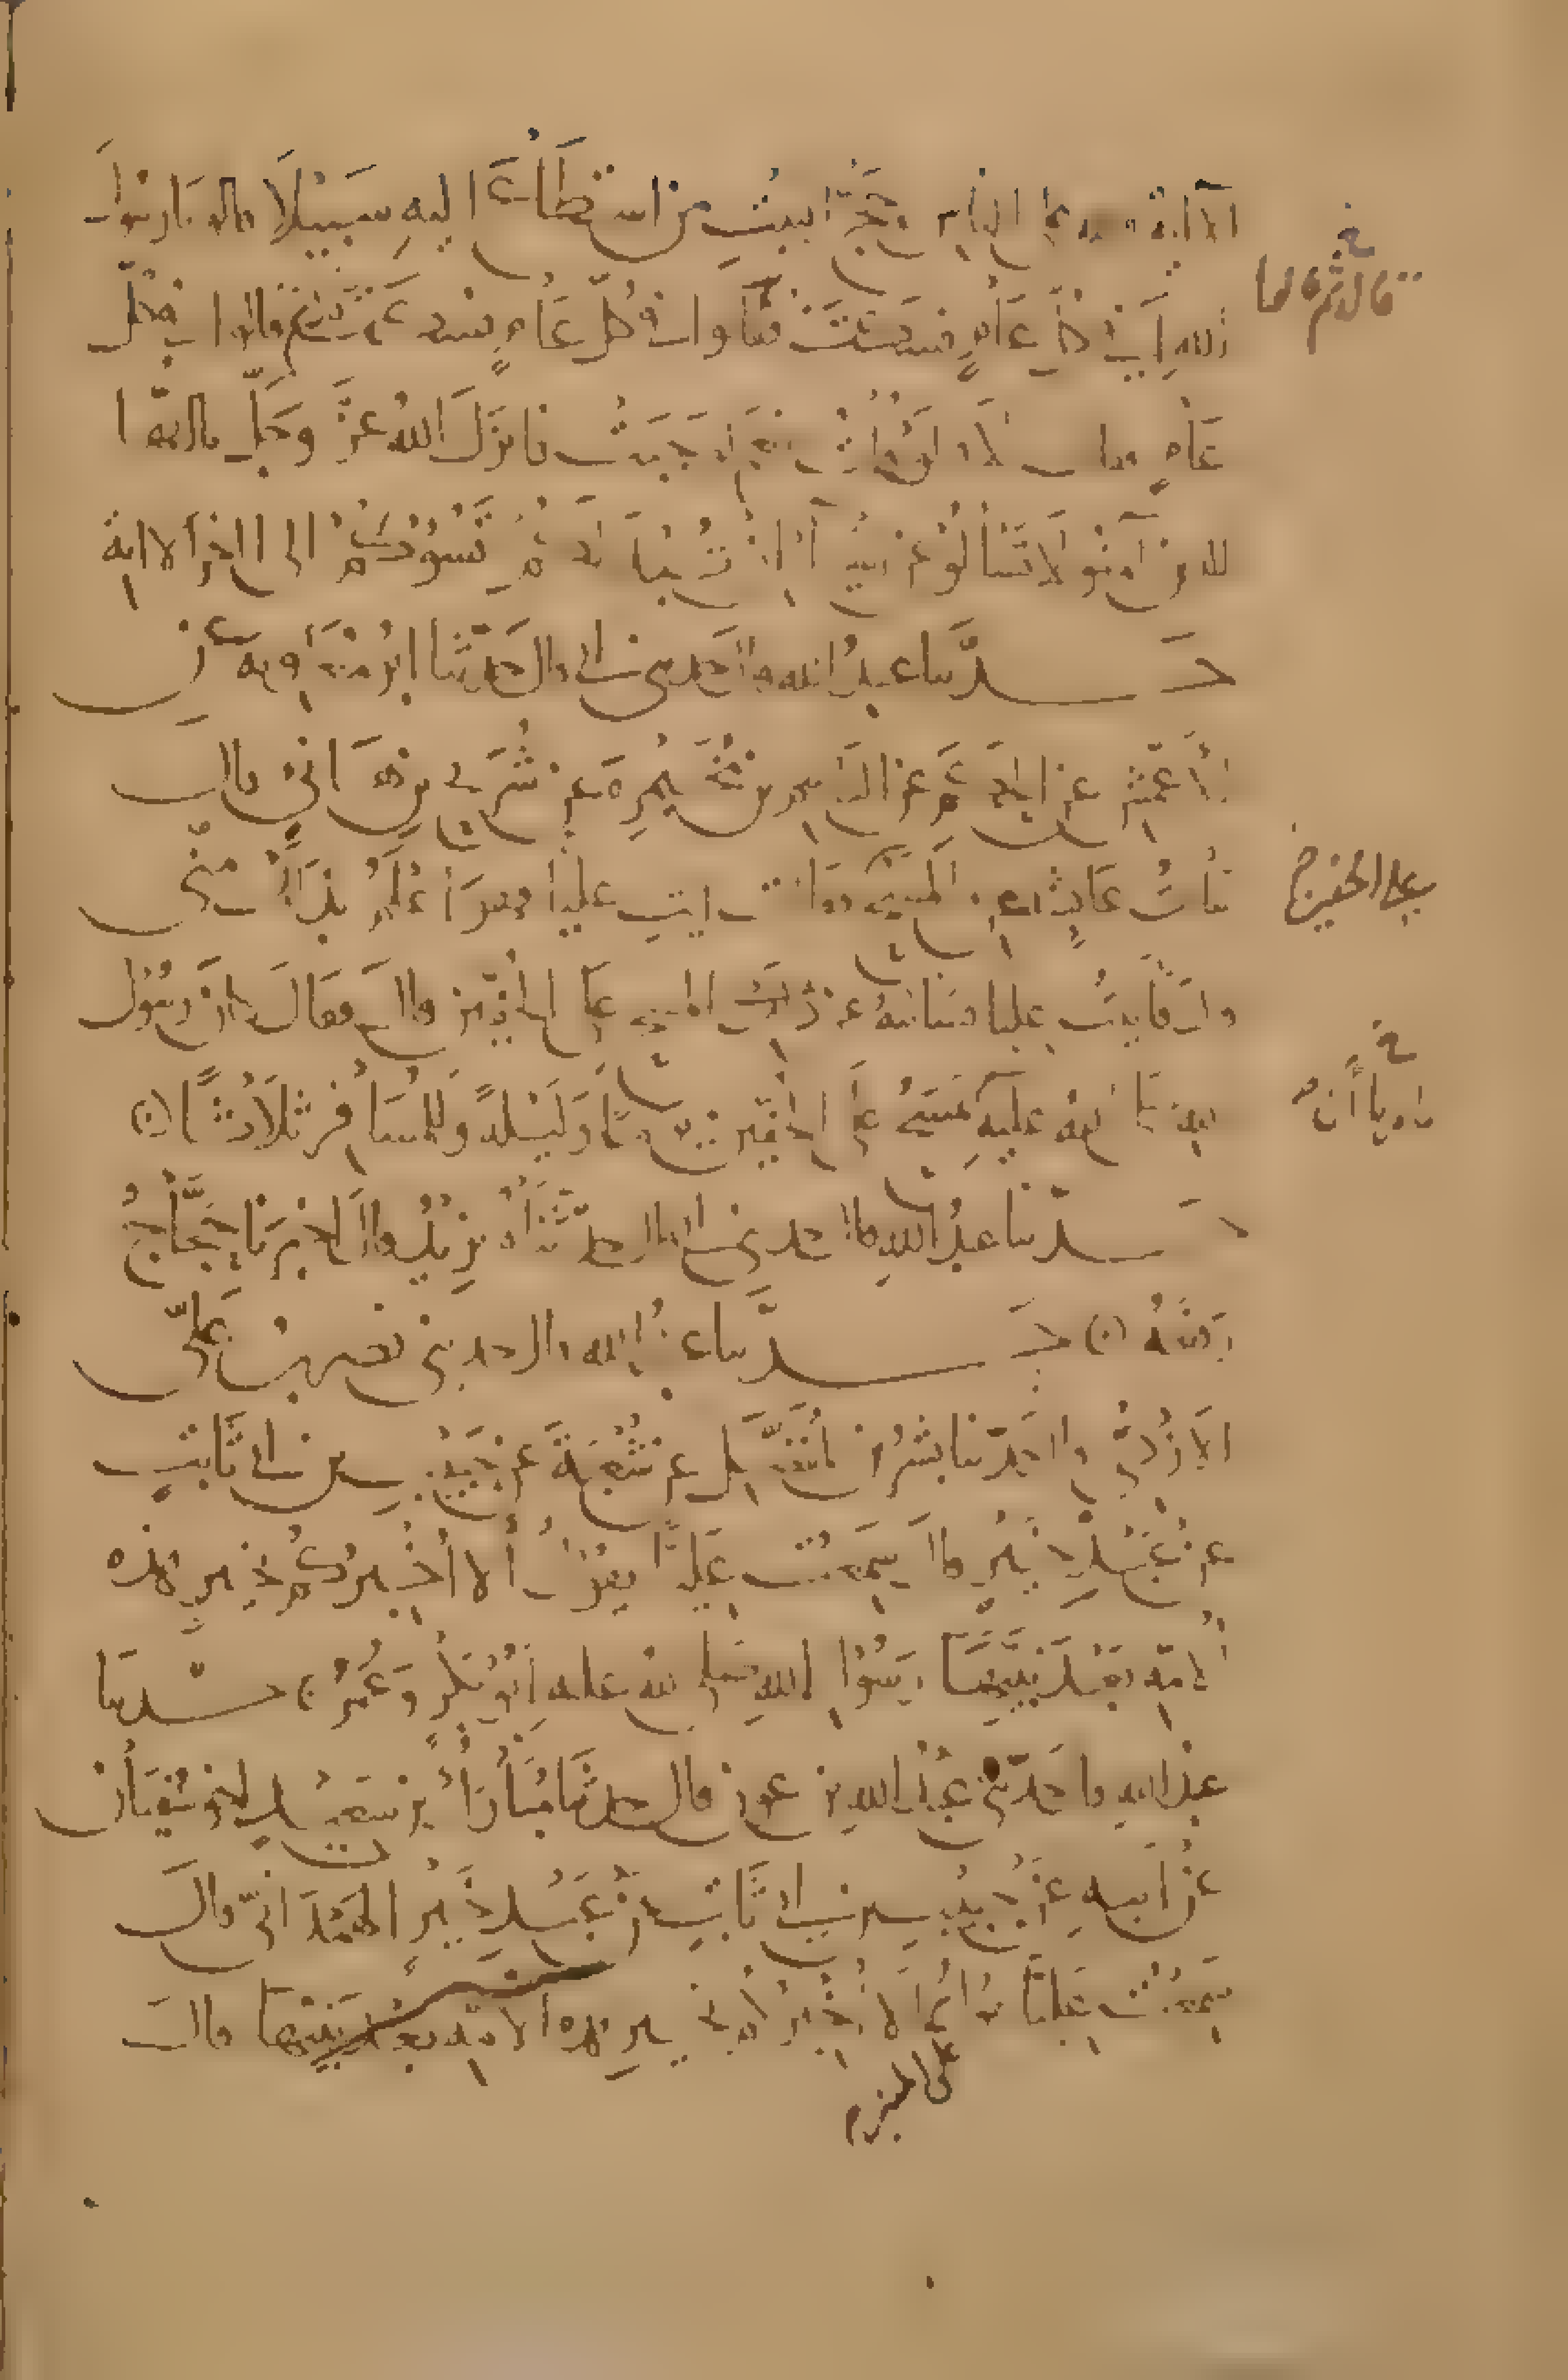 الآية ولله على الناس حج البيت من استطاع إليه سبيلا قالوا يا رسول
الله أفي كل عام فسكت فقالوا أفي كل عام فسكت ثم قالوا أفي كل
عام فقال لا ولو قلت نعم لوجبت فأنزل الله عز وجل يا أيها
الذين آمنوا لا تسألوا عن أشياء إن تبد لكم تسؤكم إلى آخر الآية
حدثنا عبد الله قال حدثني أبي قال حدثنا أبو معاوية عن
الأعمش عن الحكم عن القاسم بن مخيمرة عن شريح بن هانئ قال
سألت عائشة عن المسح فقالت ايت عليا فهو أعلم بذلك مني
قال فأتيت عليا فسألته عن ذلك المسح على الخفين قال فقال كان رسول
الله صلى الله عليه يمسح على الخفين يوما وليلة وللمسافر ثلاثا
حدثنا عبد الله قال حدثني أبي قال حدثناه يزيد قال أخبرنا حجاج
رفعه حدثنا عبد الله قال حدثني نصر بن علي
الأزدي قال حدثنا بشر بن المفضل عن شعبة عن حبيب بن أبي ثابت
عن عبد خير قال سمعت عليا يقول ألا أخبركم بخير هذه
الأمة بعد نبيها رسول الله صلى الله عليه أبو بكر وعمر حدثنا
عبد الله قال حدثني عبد الله بن عون قال حدثنا مبارك بن سعيد أخو سفيان
عن أبيه عن حبيب بن أبي ثابت عن عبد خير الهمداني قال
سمعت عليا يقول ألا أخبركم بخير هذه الأمة بعد نبيها قال
على المنبر
على الخفين